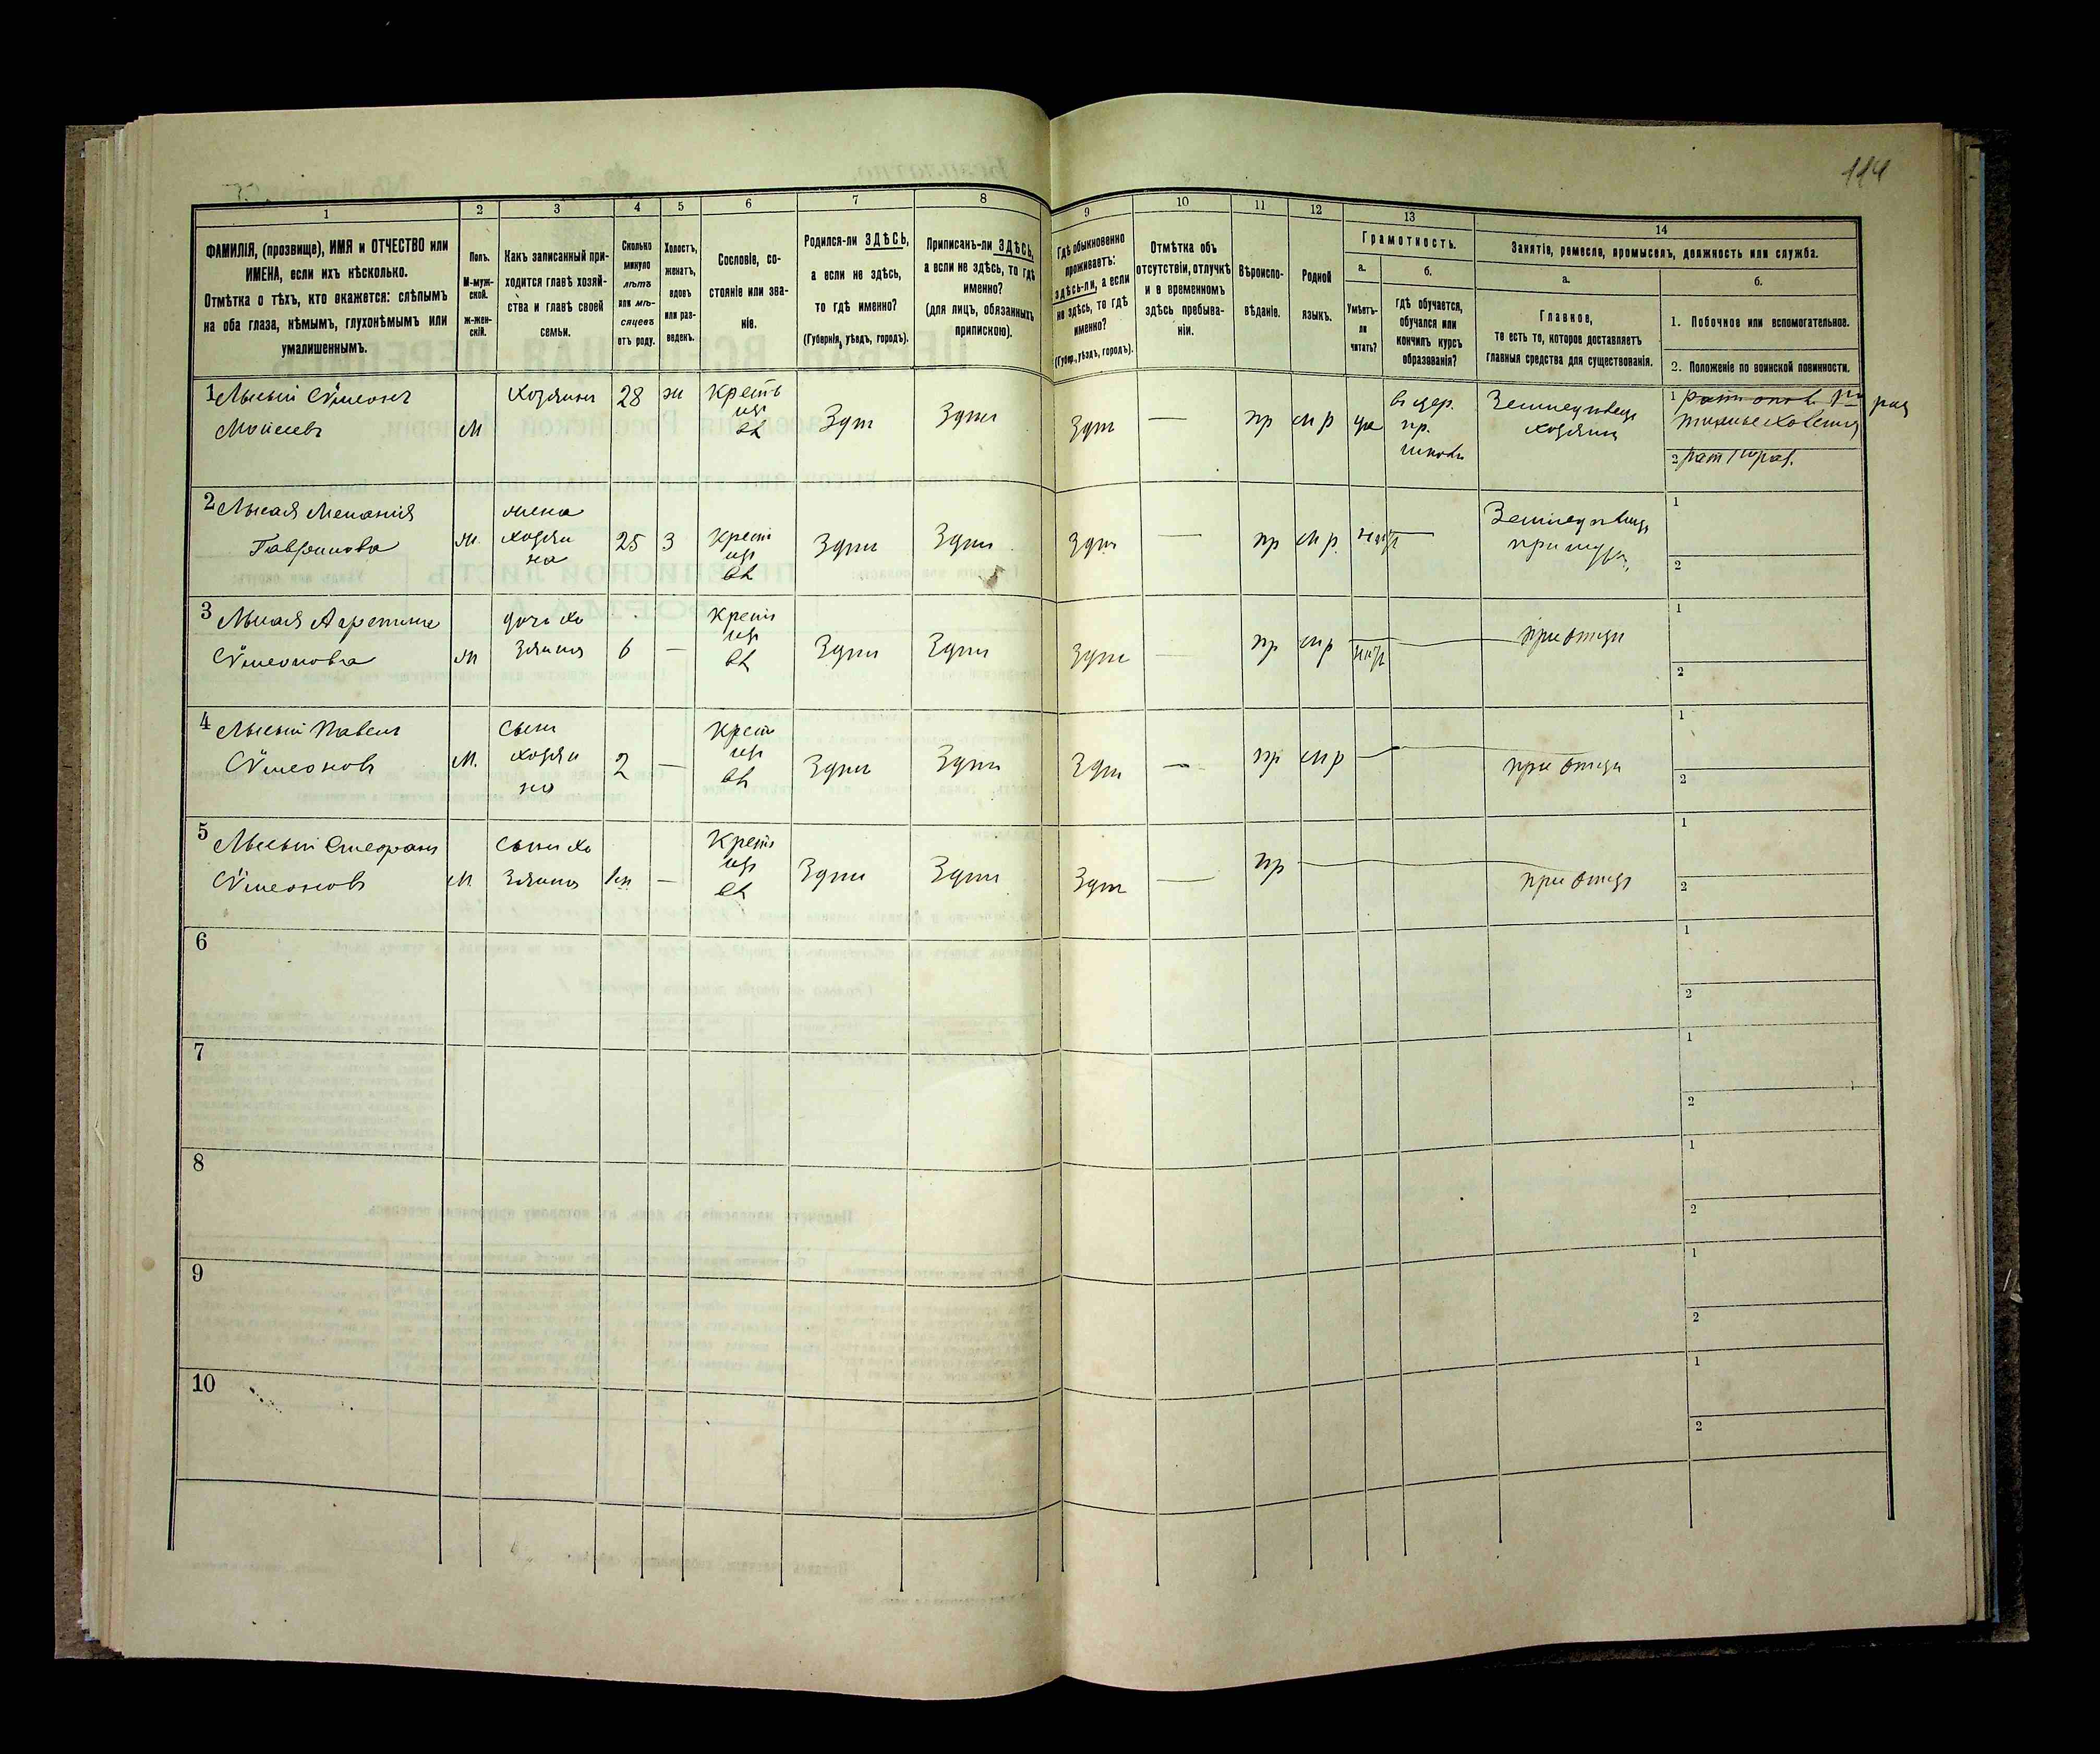 114
1 2 3 4 5 6 7 8 9 10 11 12 13 14
ФАМИЛІЯ, (прозвище), ИМЯ и ОТЧЕСТВО или
ИМЕНА, если ихъ нѣсколько.
Отмѣтка о тѣхъ, кто окажется: слѣпымъ
на оба глаза, нѣмымъ, глухонѣмымъ или
умалишеннымъ.
Полъ.
М-муж-
ской.
Ж-жен-
скій.
Какъ записанный при-
ходится главѣ хозяй-
ства и главѣ своей
семьи.
Сколько
минуло
лѣтъ
или мѣ-
сяцевъ
отъ роду.
Холостъ,
женатъ,
вдовъ
или раз-
веденъ.
Сословіе, со-
стояніе или зва-
ніе.
Родился-ли ЗДѢСЬ,
а если не здѣсь,
то гдѣ именно?
(Губернія, уѣздъ, городъ).
Приписанъ-ли ЗДѢСЬ,
а если не здѣсь, то гдѣ
именно?
(для лицъ, обязанныхъ
припискою).
Гдѣ обыкновенно
проживаетъ:
здѣсь-ли, а если
не здѣсь, то гдѣ
именно?
(Губер., уѣздъ, городъ).
Отмѣтка объ
отсутствіи, отлучкѣ
и о временномъ
здѣсь пребыва-
ніи.
Вѣроиспо-
вѣданіе.
Родной
языкъ.
Грамотность.
а.
Умѣетъ-
ли
читать?
б.
гдѣ обучается,
обучался или
кончилъ курсъ
образованія?
Занятіе, ремесло, промыселъ, должность или служба.
а.
Главное,
то есть то, которое доставляетъ
главныя средства для существованія.
б.
1. Побочное или вспомогательное.
2. Положеніе по воинской повинности.
1 Лысый Сѵмеонъ
Моисеевъ
М
Хозяинъ
28
ж
Крестъ
изъ
вл
Здѣсь
Здѣсь
Здѣсь
—
пр
м р
да
въ цер.
пр.
школѣ
Земледѣлецъ
хозяинъ
1
2 рат 1го раз.
2 Лысая Меланія
Гавриилова
ж.
жена
хозяи
на
25
З
Крест
изъ
вл
Здѣсь
Здѣсь
Здѣсь
—
пр
м р.
нѣтъ
—
Земледѣлецъ
при мужѣ
1
2
3 Лысая Агрепина
Сѵмеонова
ж
дочь хо
зяина
6
—
Крест
изъ
вл
Здѣсь
Здѣсь
Здѣсь
—
пр
м р
нѣтъ
—
при отцѣ
1
2
4 Лысый Павелъ
Сѵмеоновъ
М.
сынъ
хозяи
на
2
—
Крест
изъ
вл
Здѣсь
Здѣсь
Здѣсь
—
пр
м р
—
при отцѣ
1
2
5 Лысый Стефанъ
Сѵмеоновъ
М
сынъ хо
зяина
1м
—
Крест
изъ
вл
Здѣсь
Здѣсь
Здѣсь
—
пр
—
при отцѣ
1
2
6
1
2
7
1
2
8
1
2
9
1
2
10
1
2